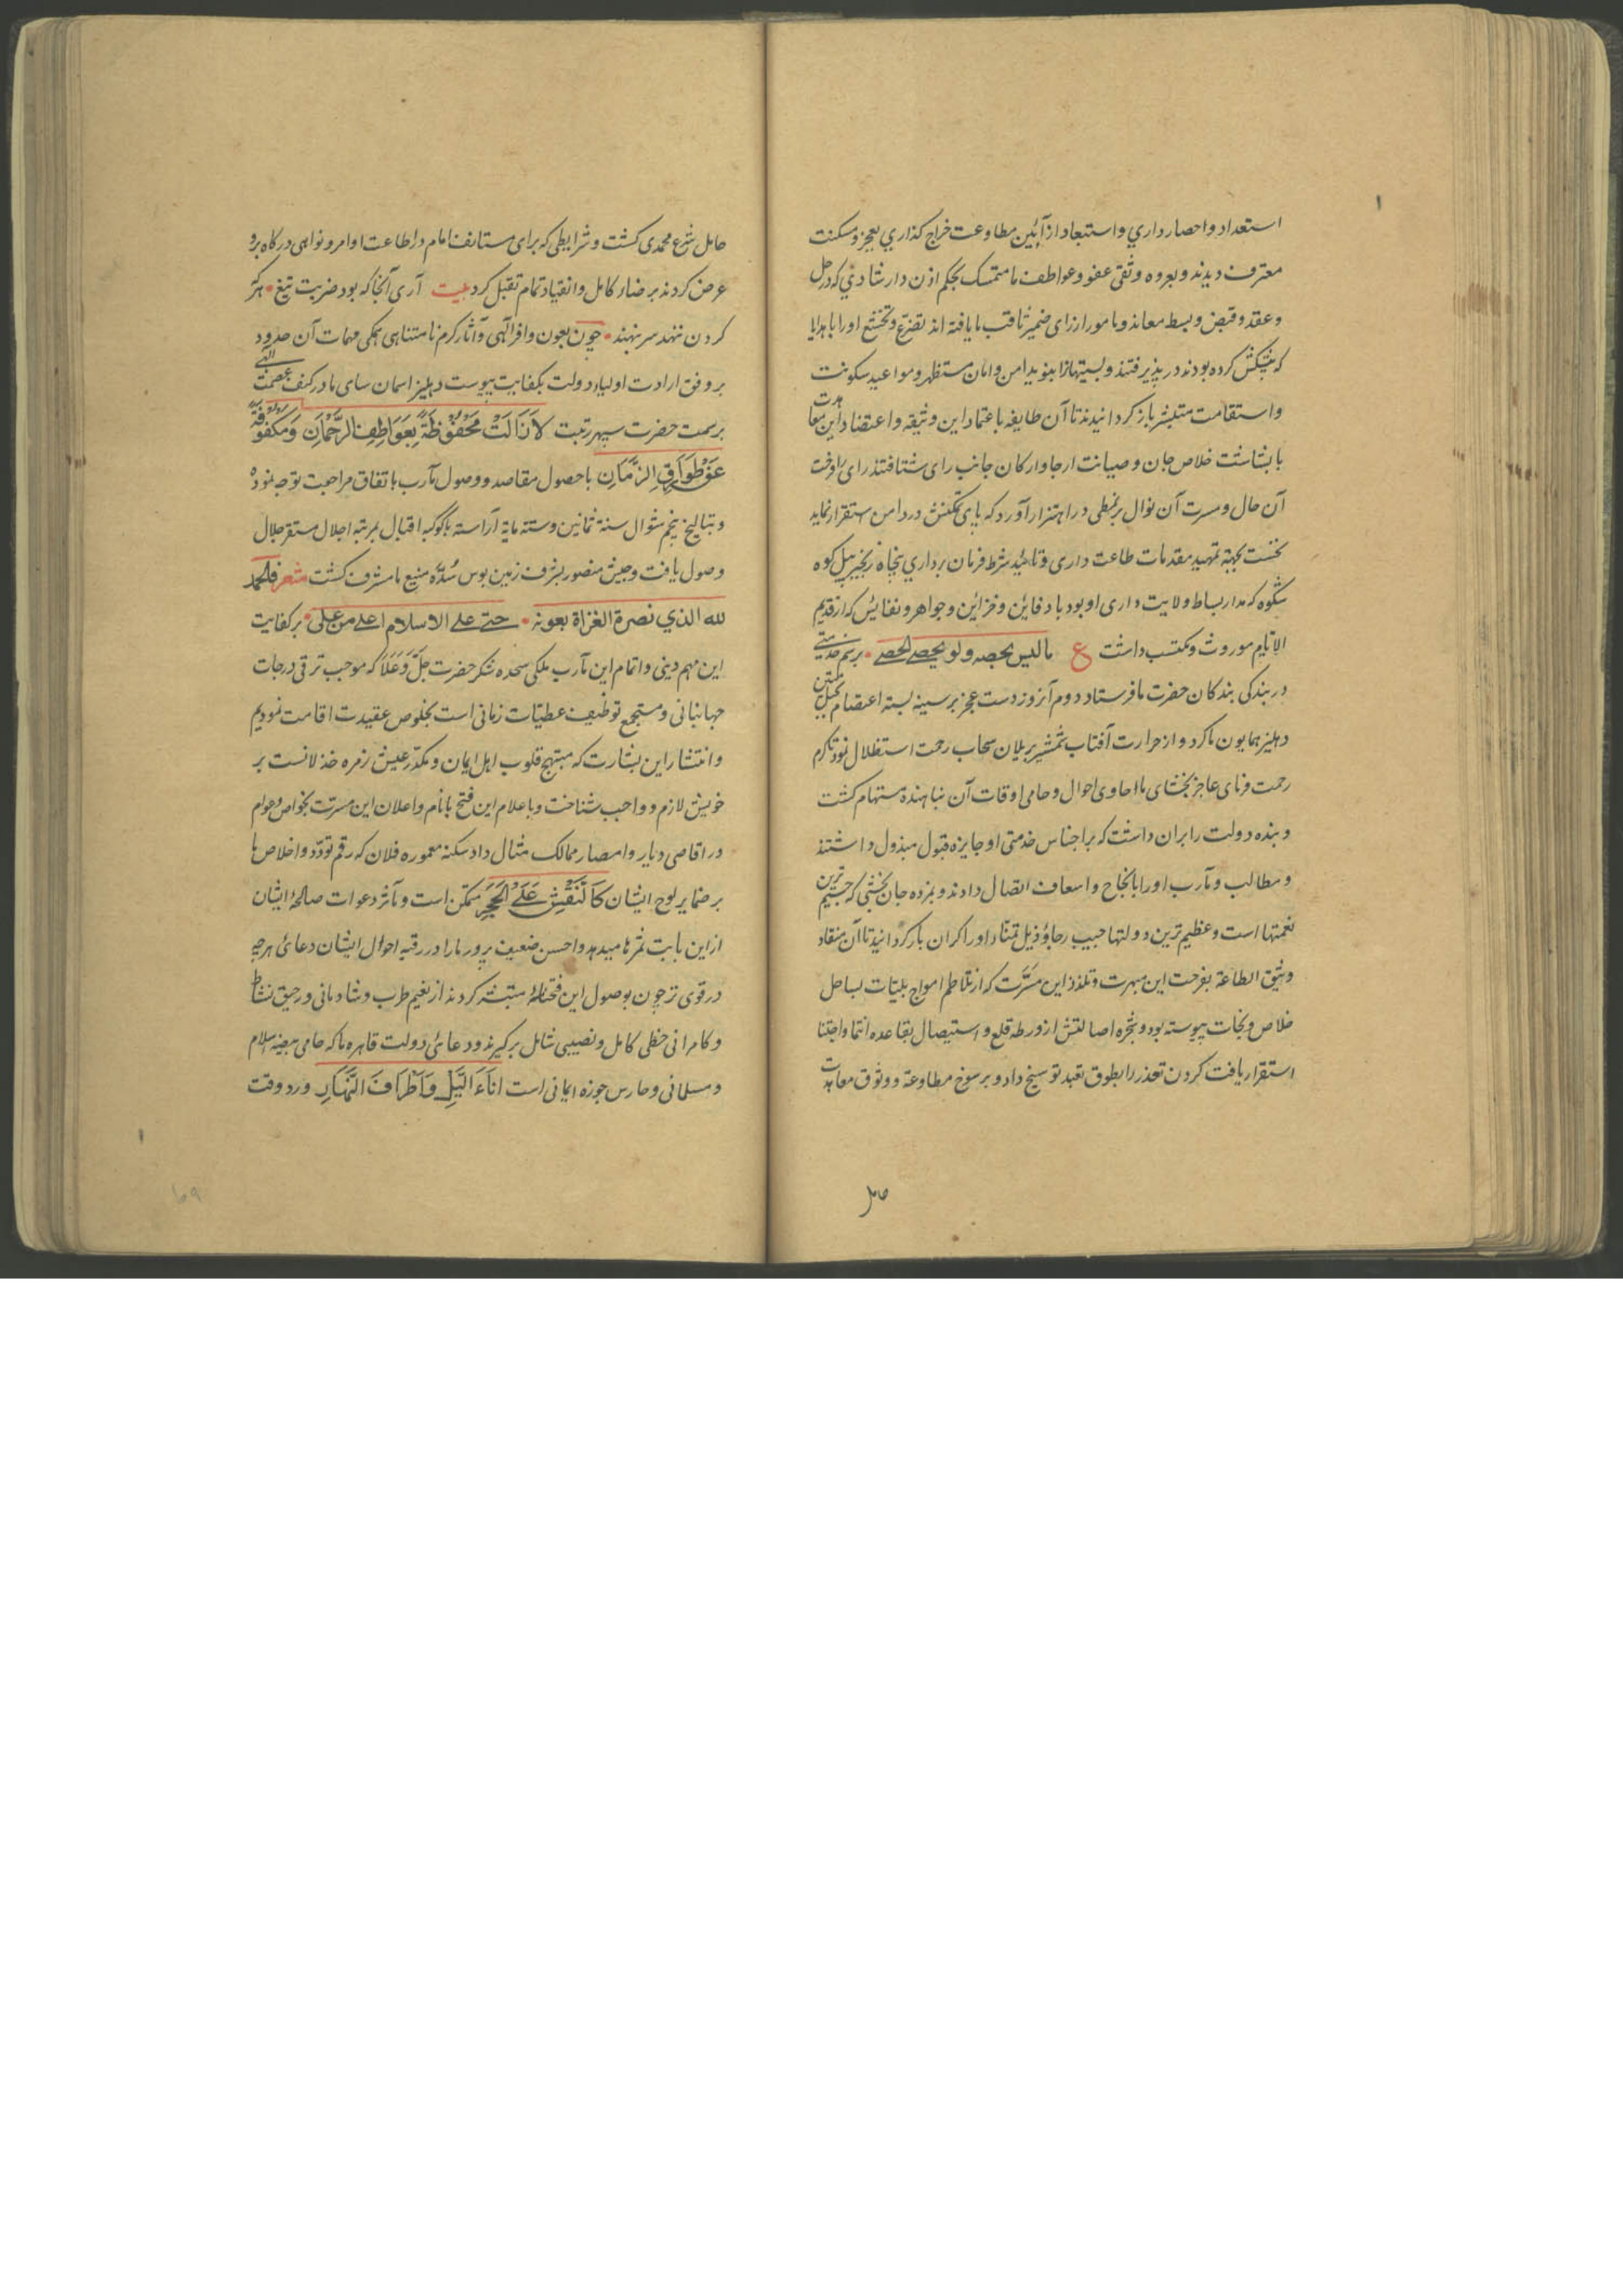 استعداد و احصار داري و استبعاد از آئین مطاوعت خراج کذاري بعجز و مسکنت
معترف دیدند و بعروه وثقی عفو و عواطف ما متمسک بحکم اذن دار شادي که در حل
و عقد و قبض و بسط معاند و مامور از رای ضمیر ثاقب ما یافته اند تضرع و تخشع او را با هدایا
که پیشکش کرده بودند در پذیرفتند و بنوید امن و امان مستظهر و مواعید سکونت
و استقامت متبشر باز کردانیدند تا آن طایفه باعتماد این وثیقه و اعتضاد این معاهدت
با بشاشت خلاص جان و صیانت ارجا و ارکان جانب رای شتافتند رای را فرحت
آن حال و مسرت آن نوال بر نمطی در اهتزاز آورد که پای تمکنش در دامن استقرار نماید
نخست بجهة تمهید مقدمات طاعت داری و تاکید شرط فرمان برداري پنجاه زنجیر پیل کوه
شکوه که مدار بساط ولایت داری او بود با دفاین و خزاین و جواهر و نفایس که از قدیم
الایام موروث و مکتسب داشت ع مالیس یحصه ولو یحصے الحصے برسم خدمتے
در بندکی بندکان حضرت ما فرستاد دوم آنروز دست عجز بر سینه بسته اعتصام بحبل متین
دهلیز همایون ما کرد و از حرارت آفتاب شمشیر بریلان سحاب رحمت استظلال نمود تا کرم
رحمت فرمای عاجز بخشای ما حاوی احوال و حامی اوقات آن پناهنده مستهام کشت
و بنده دولت را بران داشت که بر اجناس خدمتی او جایزه قبول مبذول داشتند
و مطالب و مآرب او را بانجاح و اسعاف اتصال دادند و بمژده جان بخشی که جسیم ترین
نعمتها است و عظیم ترین دولتها جیب رجا و ذیل تمنا او را کران بار کردانید تا آن منقاد
وثیق الطاعة بفرحت این مبهرت و تلذذ این مسرت که از تلاطم امواج بلیات بساحل
خلاص و نجات پیوسته بود و شجره اصالتش از ورطه قلع و استیصال بقاعده انتما و اجتنا
استقرار یافت کردن تعذر را بطوق تعبد توسیخ داد و برسوخ مطاوعة و وثوق معاهدت
حامل
حامل شرع محمدی کشت و شرایطی که برای مستانف امام در اطاعت اوامر و نواهی درکاه برو
عرض کردند برضاء کامل و انقیاد تمام تقبل کرد بیت آری آنجا که بود ضربت تیغ هر که
کردن ننهد سر بنهند چون بعون وافر آلهی و آثار کرم نامتناهی همکی مهمات آن حدود
بر وفق ارادت اولیاء دولت بکفایت پیوست دهلیز اسمان سای ما در کنف عصمت الهے
برسمت حضرت سپهر رتبت لا زالت محفوظة بعواطف الرحمان و مکفوفة
عن طوارق الزمان با حصول مقاصد و وصول مآرب باتفاق مراجعت توجه نموده
و بتاریخ پنجم شوال سنة ثمانین و ستة مایة آراسته با کوکبه اقبال بمرتبه اجلال مستقر جلال
وصول یافت و جیش منصور بشرف زمین بوس سده منیع ما مشرف کشت شعر فالحمد
لله الذي نصرة الغزاة بعونه حتے علے الاسلام اعلے من علی بر کفایت
این مهم دینی و اتمام این مآرب ملکی سجده شکر حضرت جل و علا که موجب ترقی درجات
جهانبانی و مستجمع توظیف عطیات زمانی است بخلوص عقیدت اقامت نمودیم
و انتشار این بشارت که مبتهج قلوب اهل ایمان و مکدر عیش زمره خذلانست بر
خویش لازم و واجب شناخت و باعلام این فتح بانام و اعلان این مسرت بخواص و عوام
در اقاصی دیار و امصار ممالک مثال داد سکنه معموره فلان که رقم تودد و اخلاص ما
بر ضمایر لوح ایشان کالنقش علے الحجر متمکن است و مآثر دعوات صالحه ایشان
از این بابت ثمرها میدهد و احسن ضعیف پرور ما را در رقبه احوال ایشان دعائی هرچه
در قوی تر چون بوصول این فتحنامه مستبشر کردند از نعیم طرب و شادمانی و رحیق نشاط
و کامرانی حظی کامل و نصیبی شامل برکیرند و دعائی دولت قاهره ما که حامی بیضه اسلام
و مسلمانی و حارس حوزه ایمانی است اناء اللیل و اطراف النهار ورد وقت